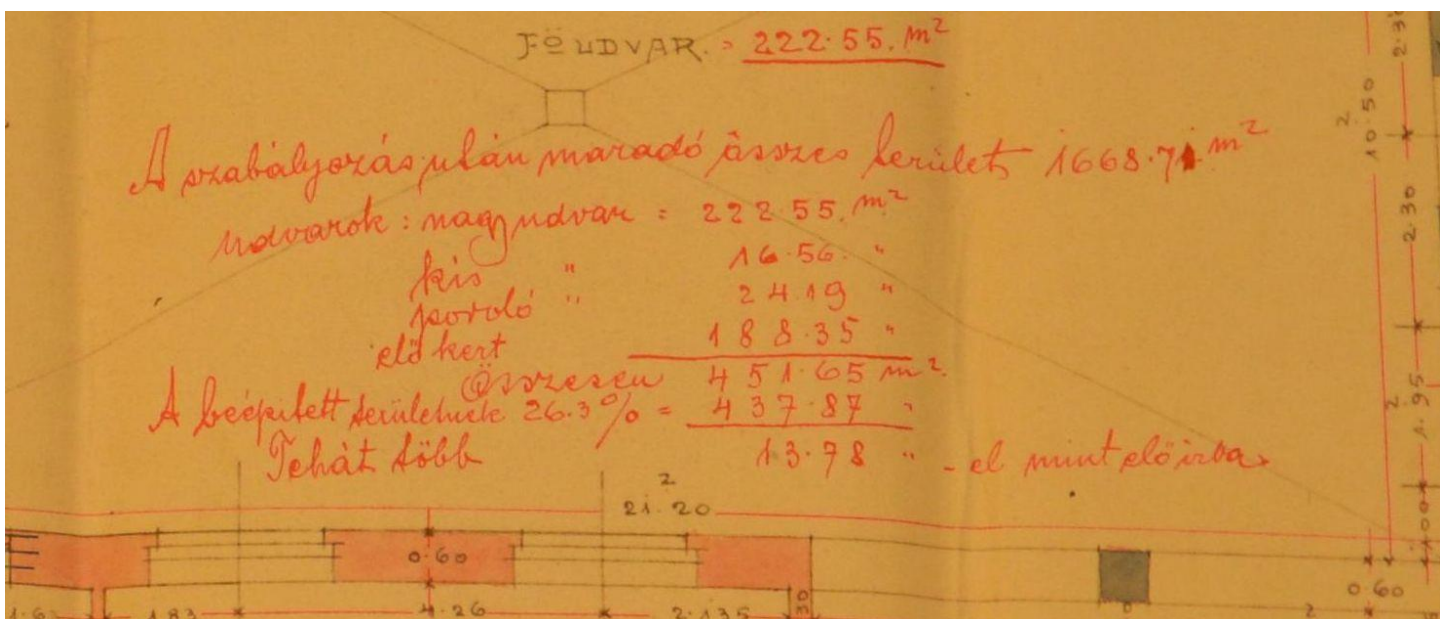 FŐUDVAR. = 222.55. m²
A szabályozás után maradó összes terület 1668.71. m²
Udvarok: nagy udvar = 222.55. m²
kis " 16.56. "
poroló " 24.19 "
elő kert 188.35 "
Összesen 451.65 m².
A beépített területnek 26.3% = 437.87 "
Tehát több 13.78 " - el mint előirva.
2
21.20
0.60
1.83
4.26
2.135
30
2.30
2
10.50
2.30
2
1.95
1.00
0.60
2